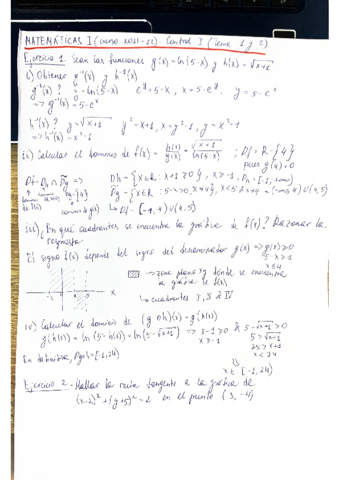 MATEMÁTICAS I (curso 2021-22). Control I. (Tema 1 y 2)
Ejercicio 1. Sean las funciones g(x) = ln(5-x) y h(x) = √x+1
i) Obtener g⁻¹(x) y h⁻¹(x)
g⁻¹(x)? y = ln(5-x) e^y = 5-x, x = 5-e^y, y = 5-e^x
=> g⁻¹(x) = 5-e^x
h⁻¹(x)? y = √x+1 y² = x+1, x = y²-1, y = x²-1
=> h⁻¹(x) = x²-1
ii) Calcular el dominio de f(x) = h(x)/g(x) = √x+1/ln(5-x); Df = R-{4}
pues g(4) = 0
Df = Dh ∩ Dg => Dh = {x∈R : x+1≥0}, x≥-1, Dh = [-1,+∞)
Dg = {x∈R : 5-x>0, x≠4}, x<5, x≠4 = (-∞,4)∪(4,5)
Df = [-1,4)∪(4,5)
iii) ¿En qué cuadrantes se encuentra la gráfica de f(x)? Razonar la
respuesta
El signo f(x) depende del signo del denominador g(x) => g(x)≥0
5-x≥1
x≤4
=> zona plano xy donde se encuentra
la gráfica de f(x)
-1
x
↳ cuadrantes I, II y IV
iv) Calcular el dominio de (g o h)(x) = g(h(x))
g(h(x)) = ln(5-h(x)) = ln(5-√x+1) => x+1≥0 & 5-√x+1>0
x≥-1 5>√x+1
25>x+1
x<24
x∈[-1,24)
En definitiva, = [-1,24)
Ejercicio 2. Hallar la recta tangente a la gráfica de
(x-2)² + (y+5)² = 2 en el punto (3,-4)